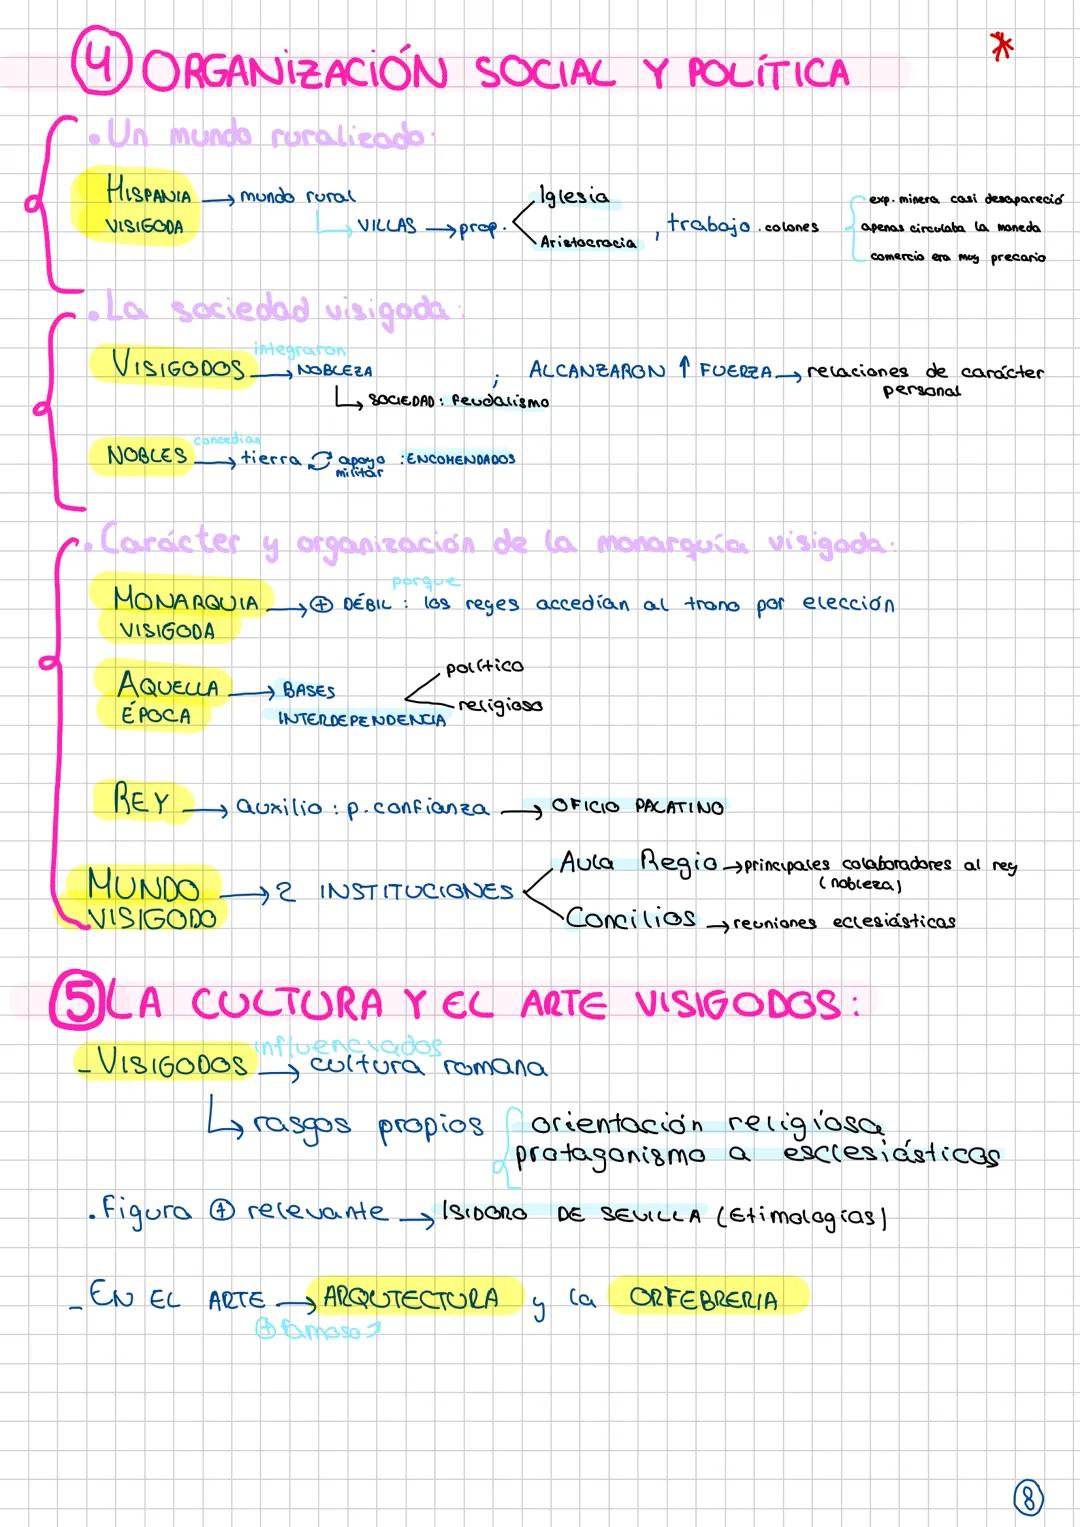 ④ ORGANIZACIÓN SOCIAL Y POLÍTICA *
• Un mundo ruralizado:
HISPANIA VISIGODA → mundo rural
↳ VILLAS → prop. < Iglesia
Aristocracia
, trabajo . colones
exp. minera casi desapareció
apenas circulaba la moneda
comercio era muy precario
• La sociedad visigoda:
VISIGODOS integraron → NOBLEZA ; ALCANZARON ↑ FUERZA → relaciones de carácter personal
↳ SOCIEDAD: feudalismo
NOBLES concedian → tierra apoyo militar : ENCOMENDADOS
• Carácter y organización de la monarquía visigoda:
porque
MONARQUIA VISIGODA → ⊕ DÉBIL : los reyes accedían al trono por elección
AQUELLA ÉPOCA → BASES INTERDEPENDENCIA < político
religioso
REY → auxilio : p. confianza → OFICIO PALATINO
MUNDO VISIGODO → 2 INSTITUCIONES < Aula Regio → principales colaboradores al rey
(nobleza)
Concilios → reuniones eclesiásticas
⑤ LA CULTURA Y EL ARTE VISIGODOS:
- VISIGODOS influenciados → cultura romana
↳ rasgos propios { orientación religiosa
protagonismo a esclesiásticos
. Figura ⊕ relevante → ISIDORO DE SEVILLA (Etimologías)
- EN EL ARTE → ARQUTECTURA y la ORFEBRERIA
⊕ famoso
⑧